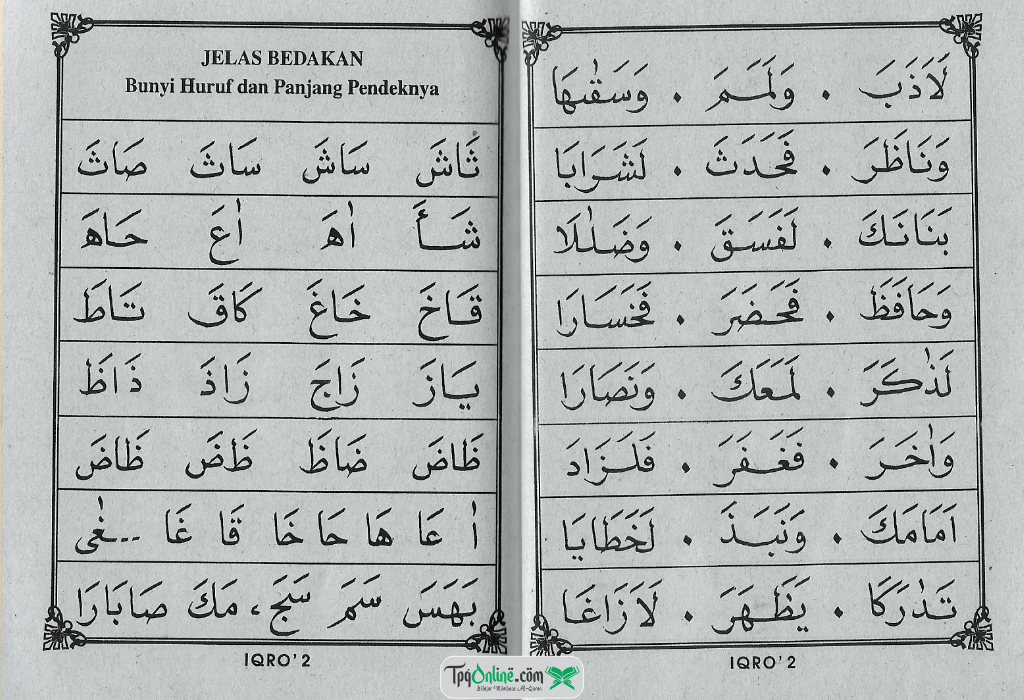 JELAS BEDAKAN
Bunyi Huruf dan Panjang Pendeknya
ثَاشَ سَاشَ سَاثَ صَاثَ
شَــأَ اٰهَ اٰعَ حَاهَ
قَاخَ خَاغَ كَاقَ تَاطَ
يَازَ زَاجَ زَاذَ ذَاظَ
ظَاضَ ضَاظَ ظَضَ ظَاضَ
اٰ عَا هَا حَا خَا قَا غَا ...غٰى
بَهَسَ سَمَ سَجَ، مَكَ صَابَارَا
IQRO' 2
لَاَذَبَ . وَلَمَمَ . وَسَقٰىهَا
وَنَاظَرَ . فَحَدَثَ . لَشَرَابَا
بَنَانَكَ . لَفَسَقَ . وَضَلٰلَا
وَحَافَظَ . فَحَضَرَ . فَخَسَارَا
لَذٰكَرَ . لَمَعَكَ . وَنَصَارَا
وَاٰخَرَ . فَغَفَرَ . فَلَزَادَ
اَمَامَكَ . وَنَبَذَ . لَخَطَايَا
تَدٰرَكَا . يَظَهَرَ . لَازَاغَا
IQRO' 2
TpqOnline.com
Belajar Membaca Al-Quran